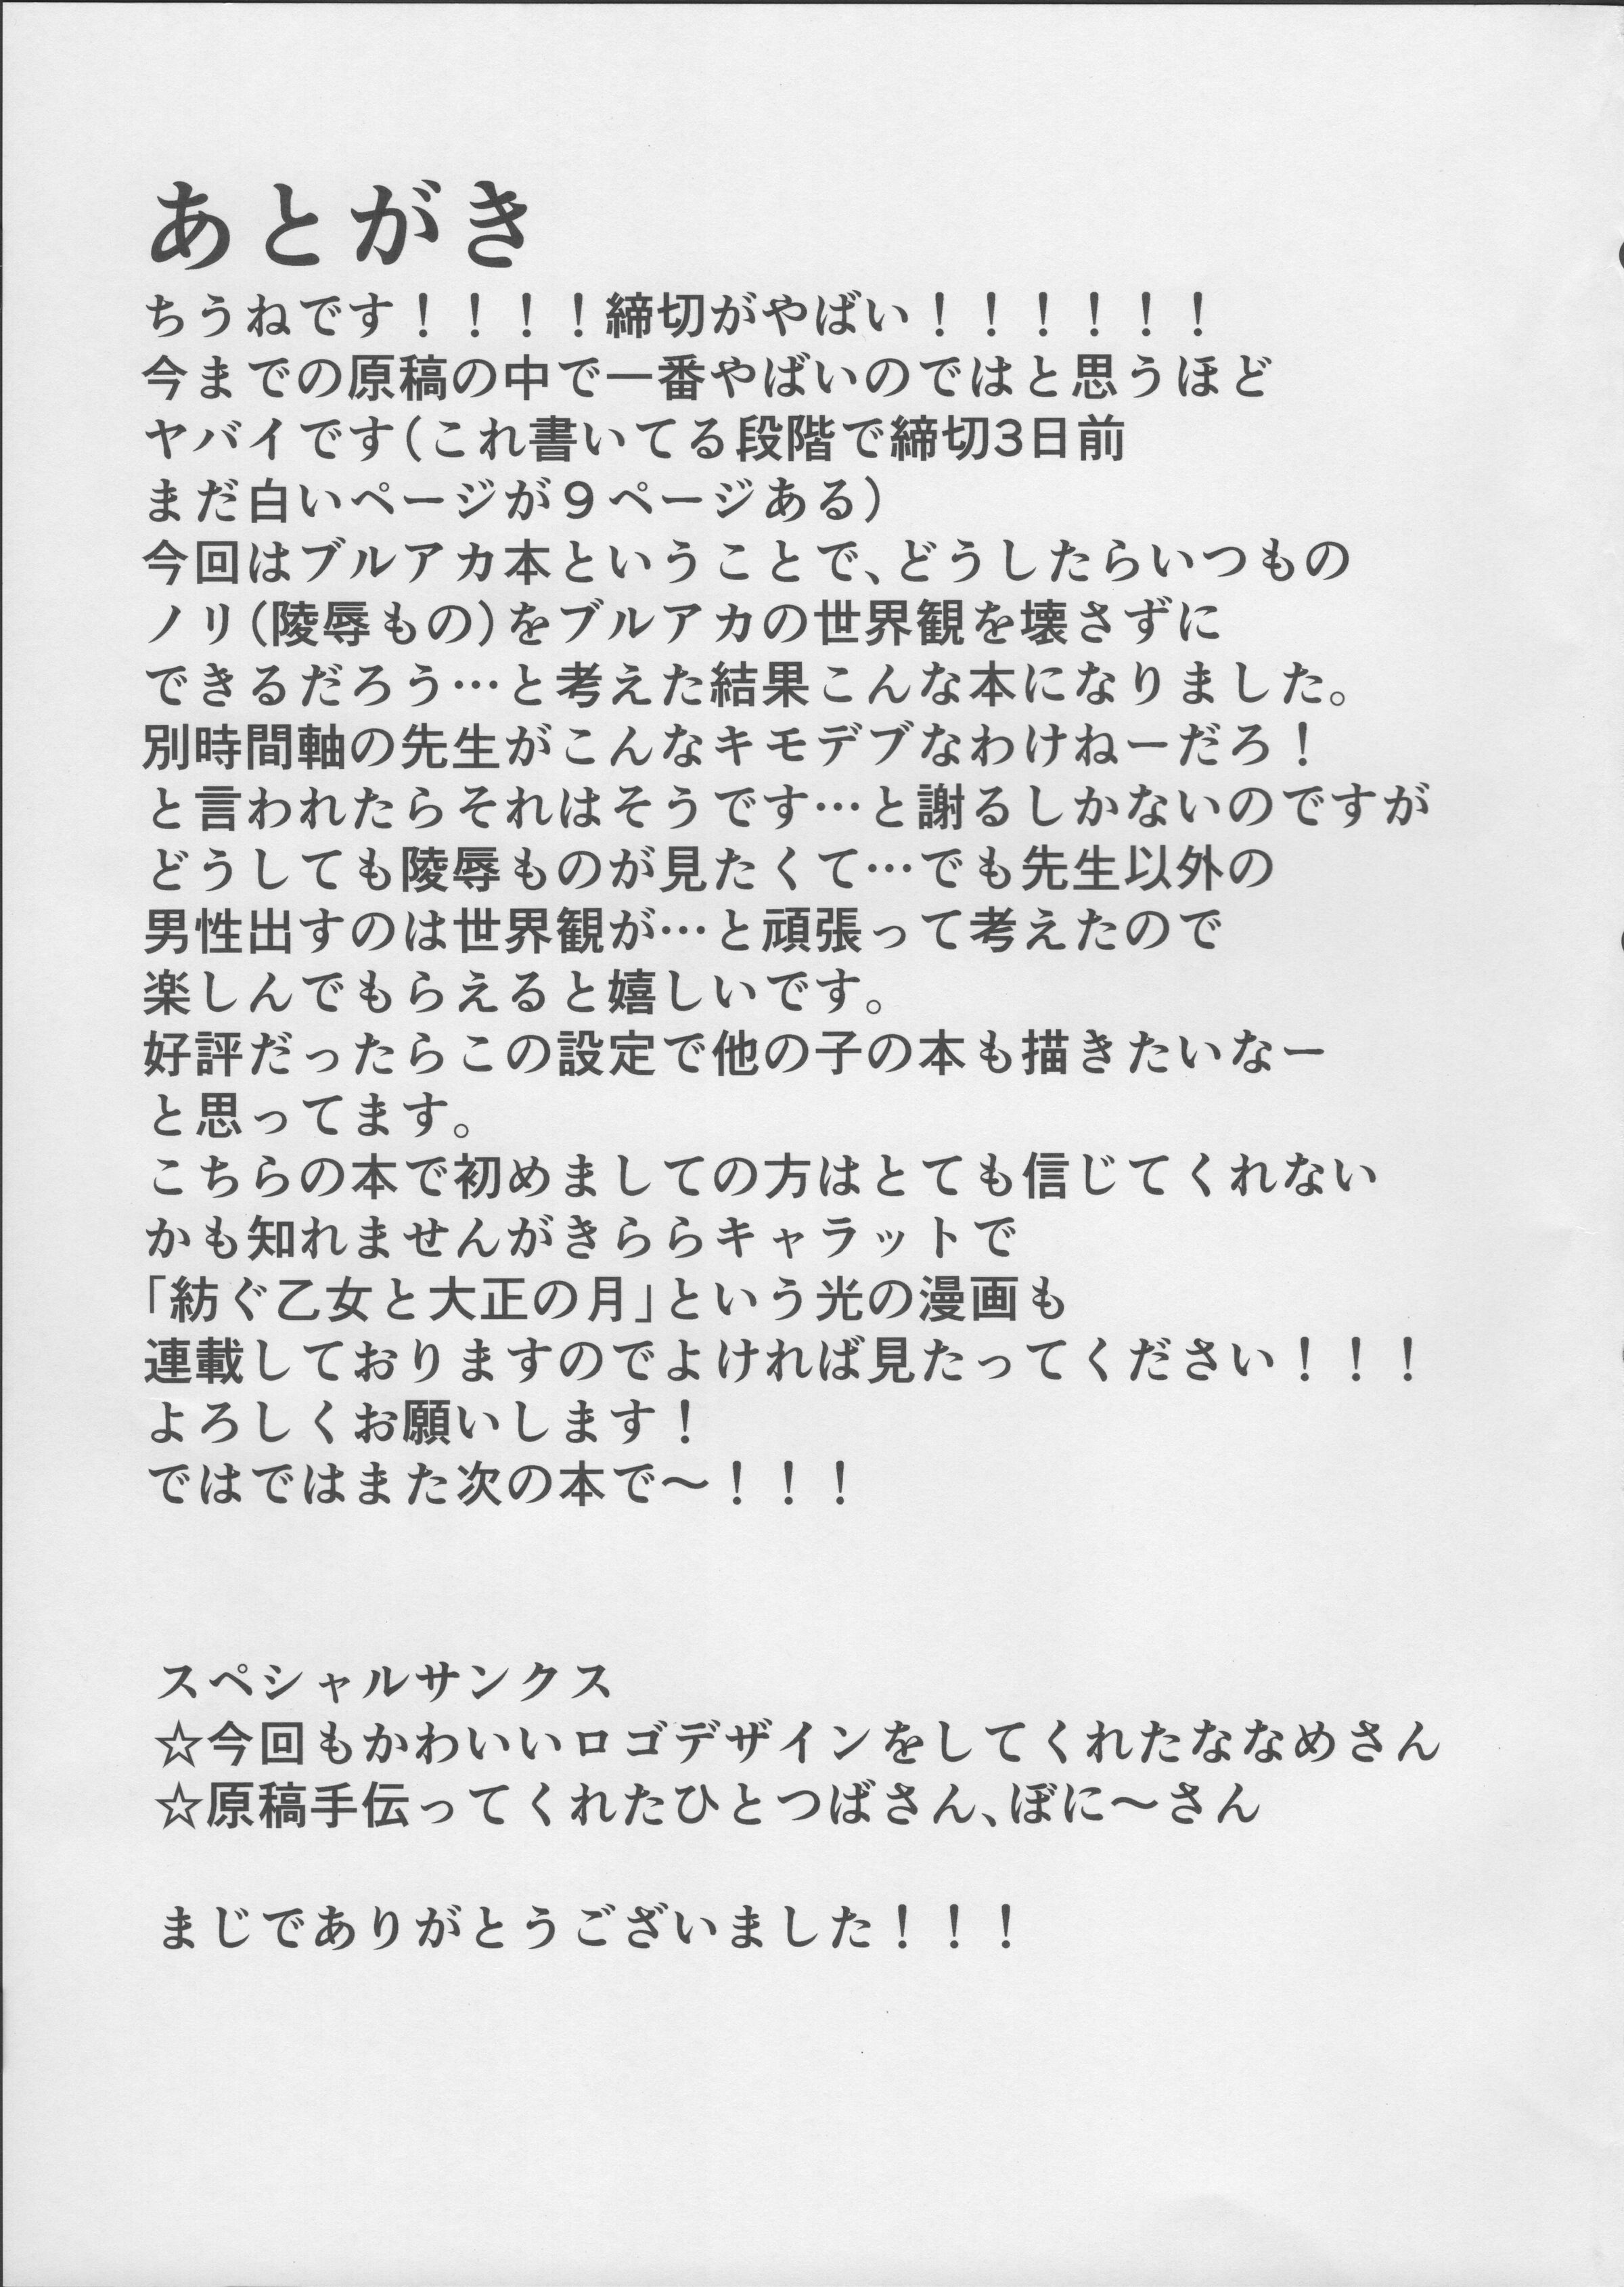 あとがき
ちうねです！！！！締切がやばい！！！！！！
今までの原稿の中で一番やばいのではと思うほど
ヤバイです(これ書いてる段階で締切3日前
まだ白いページが９ページある)
今回はブルアカ本ということで、どうしたらいつもの
ノリ(陵辱もの)をブルアカの世界観を壊さずに
できるだろう…と考えた結果こんな本になりました。
別時間軸の先生がこんなキモデブなわけねーだろ！
と言われたらそれはそうです…と謝るしかないのですが
どうしても陵辱ものが見たくて…でも先生以外の
男性出すのは世界観が…と頑張って考えたので
楽しんでもらえると嬉しいです。
好評だったらこの設定で他の子の本も描きたいなー
と思ってます。
こちらの本で初めましての方はとても信じてくれない
かも知れませんがきららキャラットで
「紡ぐ乙女と大正の月」という光の漫画も
連載しておりますのでよければ見たってください！！！
よろしくお願いします！
ではではまた次の本で～！！！
スペシャルサンクス
☆今回もかわいいロゴデザインをしてくれたななめさん
☆原稿手伝ってくれたひとつばさん、ぼに～さん
まじでありがとうございました！！！